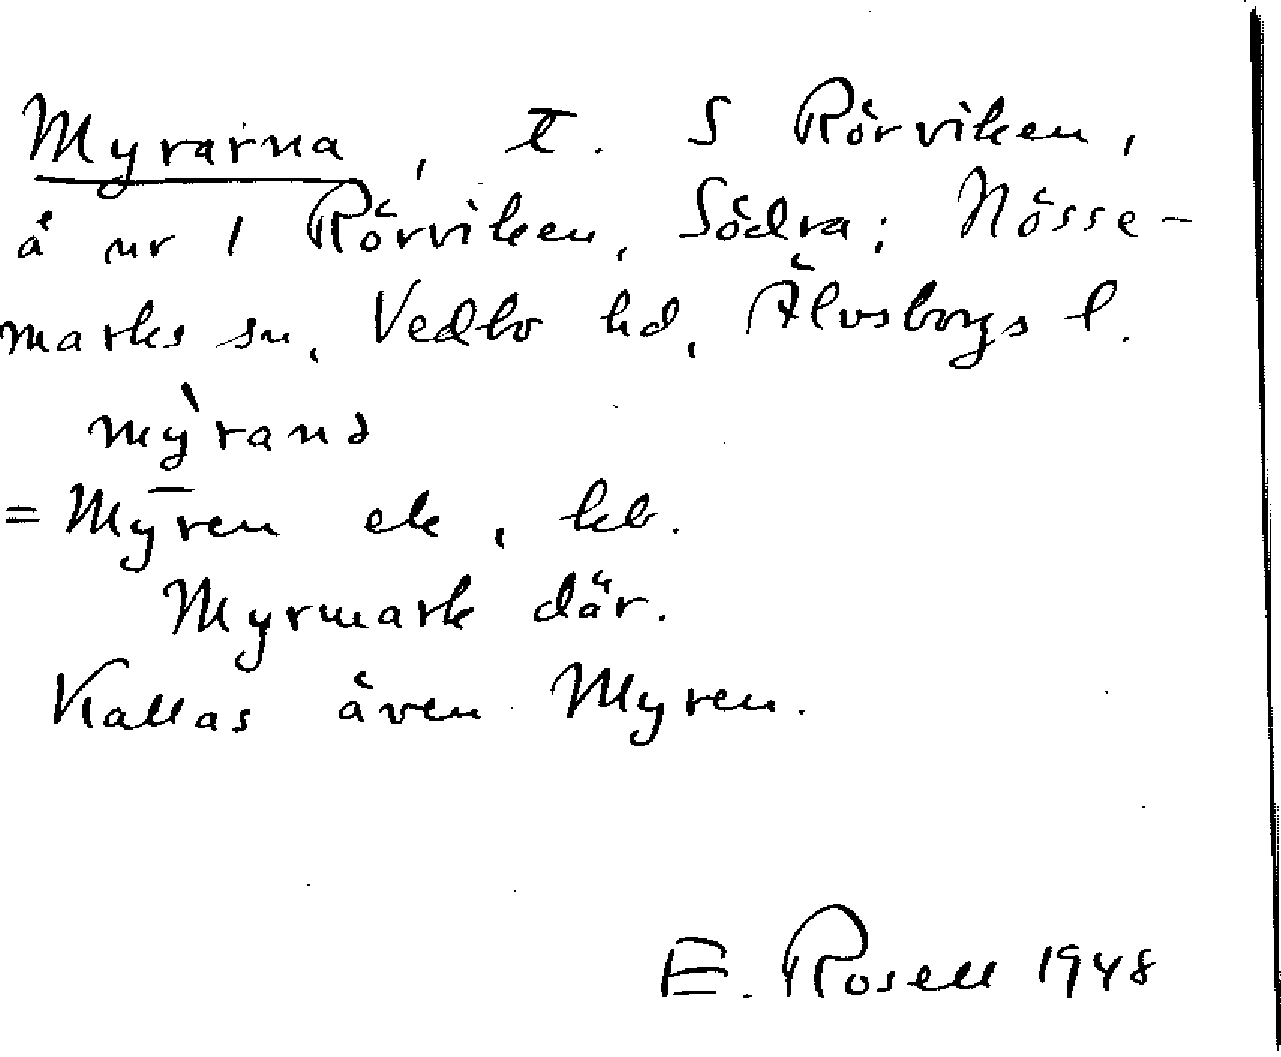 Myrarna, t. S Rörviken,
å nr 1 Rörviken, Södra; Nösse-
marks sn, Vedbo hd, Älvsborgs l.
mỳrana
= Myren ek, kb.
Myrmark där.
Kallas även Myren.
E. Rosell 1948